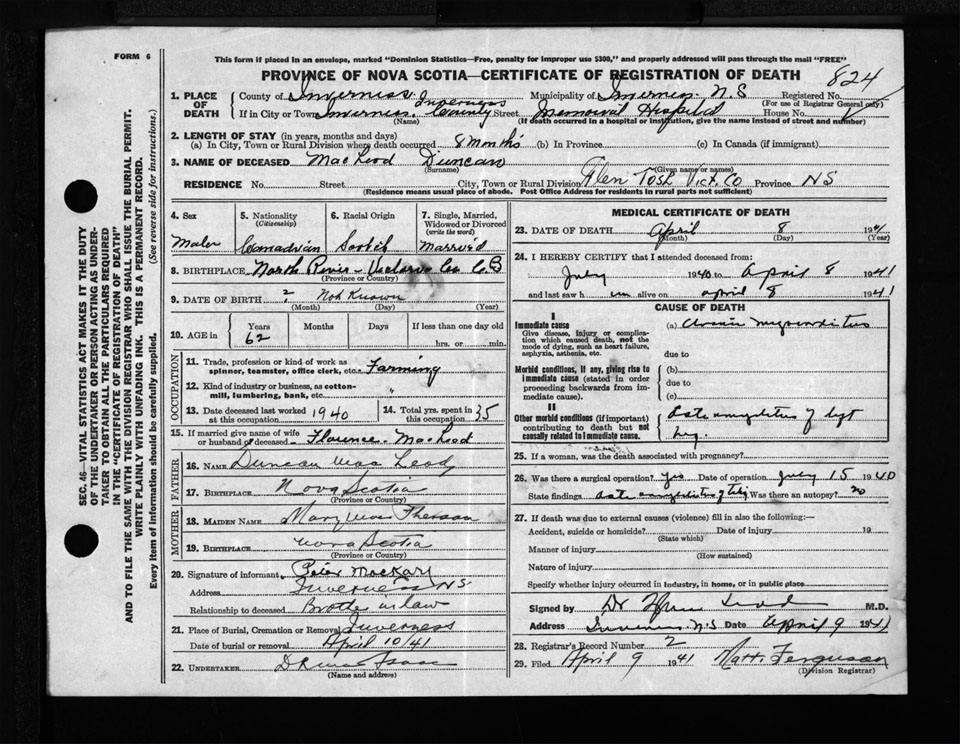 FORM 6
This form if placed in an envelope, marked "Dominion Statistics—Free, penalty for improper use $300," and properly addressed will pass through the mail "FREE"
PROVINCE OF NOVA SCOTIA—CERTIFICATE OF REGISTRATION OF DEATH
824
1. PLACE OF DEATH
County of Inverness Municipality of Inverness N.S Registered No.
(For use of Registrar General only)
If in City or Town Inverness Inverness County Street Memorial Hospital House No.
(Name) (If death occurred in a hospital or institution, give the name instead of street and number)
2. LENGTH OF STAY (in years, months and days)
(a) In City, Town or Rural Division where death occurred 8 Months (b) In Province (c) In Canada (if immigrant)
3. NAME OF DECEASED MacLeod Duncan
(Surname) (Given name or names)
RESIDENCE No. Street City, Town or Rural Division Glen Tosh Vict. Co Province NS
(Residence means usual place of abode. Post Office Address for residents in rural parts not sufficient)
4. Sex
Male
5. Nationality (Citizenship)
Canadian
6. Racial Origin
Scotch
7. Single, Married, Widowed or Divorced (write the word)
Married
8. BIRTHPLACE North River - Victoria Co C.B
(Province or Country)
9. DATE OF BIRTH ? Not Known
(Month) (Day) (Year)
10. AGE in Years Months Days If less than one day old
62 hrs. or min.
OCCUPATION
11. Trade, profession or kind of work as spinner, teamster, office clerk, etc. Farming
12. Kind of industry or business, as cotton-mill, lumbering, bank, etc. "
13. Date deceased last worked at this occupation 1940
14. Total yrs. spent in this occupation 35
15. If married give name of wife or husband of deceased Florence MacLeod
FATHER
16. NAME Duncan MacLeod
17. BIRTHPLACE Nova Scotia
(Province or Country)
MOTHER
18. MAIDEN NAME Mary
19. BIRTHPLACE Nova Scotia
(Province or Country)
20. Signature of informant Peter
Address Inverness NS
Relationship to deceased Brother in law
21. Place of Burial, Cremation or Removal Inverness
Date of burial or removal April 10/41
22. UNDERTAKER
(Name and address)
MEDICAL CERTIFICATE OF DEATH
23. DATE OF DEATH April 8 1941
(Month) (Day) (Year)
24. I HEREBY CERTIFY that I attended deceased from:
July 1940 to April 8 1941
and last saw him alive on April 8 1941
CAUSE OF DEATH
I
Immediate cause (a) Chronic
Give disease, injury or complication which caused death, not the mode of dying, such as heart failure, asphyxia, asthenia, etc.
due to
Morbid conditions, if any, giving rise to immediate cause (stated in order proceeding backwards from immediate cause).
(b)
due to
(c)
II
Other morbid conditions (if important) contributing to death but not causally related to immediate cause.
25. If a woman, was the death associated with pregnancy?
26. Was there a surgical operation? Yes Date of operation July 15 1940
State findings Was there an autopsy? no
27. If death was due to external causes (violence) fill in also the following:—
Accident, suicide or homicide? Date of injury 19
(State which)
Manner of injury
(How sustained)
Nature of injury
Specify whether injury occurred in industry, in home, or in public place
Signed by Dr M.D.
Address Inverness N.S Date April 9 1941
28. Registrar's Record Number 2
29. Filed April 9 1941 Matt. Ferguson
(Division Registrar)
SEC. 46—VITAL STATISTICS ACT MAKES IT THE DUTY
OF THE UNDERTAKER OR PERSON ACTING AS UNDER-
TAKER TO OBTAIN ALL THE PARTICULARS REQUIRED
IN THE "CERTIFICATE OF REGISTRATION OF DEATH"
AND TO FILE THE SAME WITH THE DIVISION REGISTRAR WHO SHALL ISSUE THE BURIAL PERMIT.
WRITE PLAINLY WITH UNFADING INK. THIS IS A PERMANENT RECORD.
Every item of information should be carefully supplied. (See reverse side for instructions.)